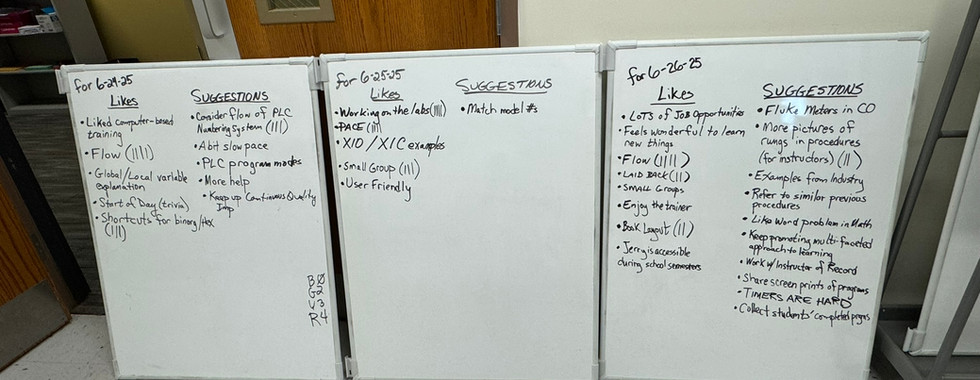 for 6-24-25
Likes
• Liked Computer-based
training
• Flow (||||)
• Global/Local variable
explanation
• Start of Day (trivia)
• Shortcuts for binary/Hex
(|||)
SUGGESTIONS
• Consider flow of PLC
Numbering System (|||)
• A bit slow pace
• PLC program modes
• More help
• Keep up Continuous Quality
Imp
BØ
G2
V3
R4
for 6-25-25
Likes
• Working on the labs (|||)
• PACE (|||)
• XIO / XIC examples
• Small Group (|||)
• User Friendly
SUGGESTIONS
• Match model #s
for 6-26-25
Likes
• LOTS of JOB Opportunities
• Feels wonderful to learn
new things
• Flow (||||)
• LAID BACK (||)
• SMALL GROUPS
• Enjoy the trainer
• Book Layout (||)
• Jerry is accessible
during school semesters
SUGGESTIONS
• Fluke Meters in CO
• More pictures of
rungs in procedures
(for instructors) (||)
• Examples from Industry
• Refer to similar previous
procedures
• Like Word problem in Math
• Keep promoting multi-faceted
approach to learning
• Work w/ Instructor of Record
• Share screen prints of programs
• TIMERS ARE HARD
• Collect students' completed